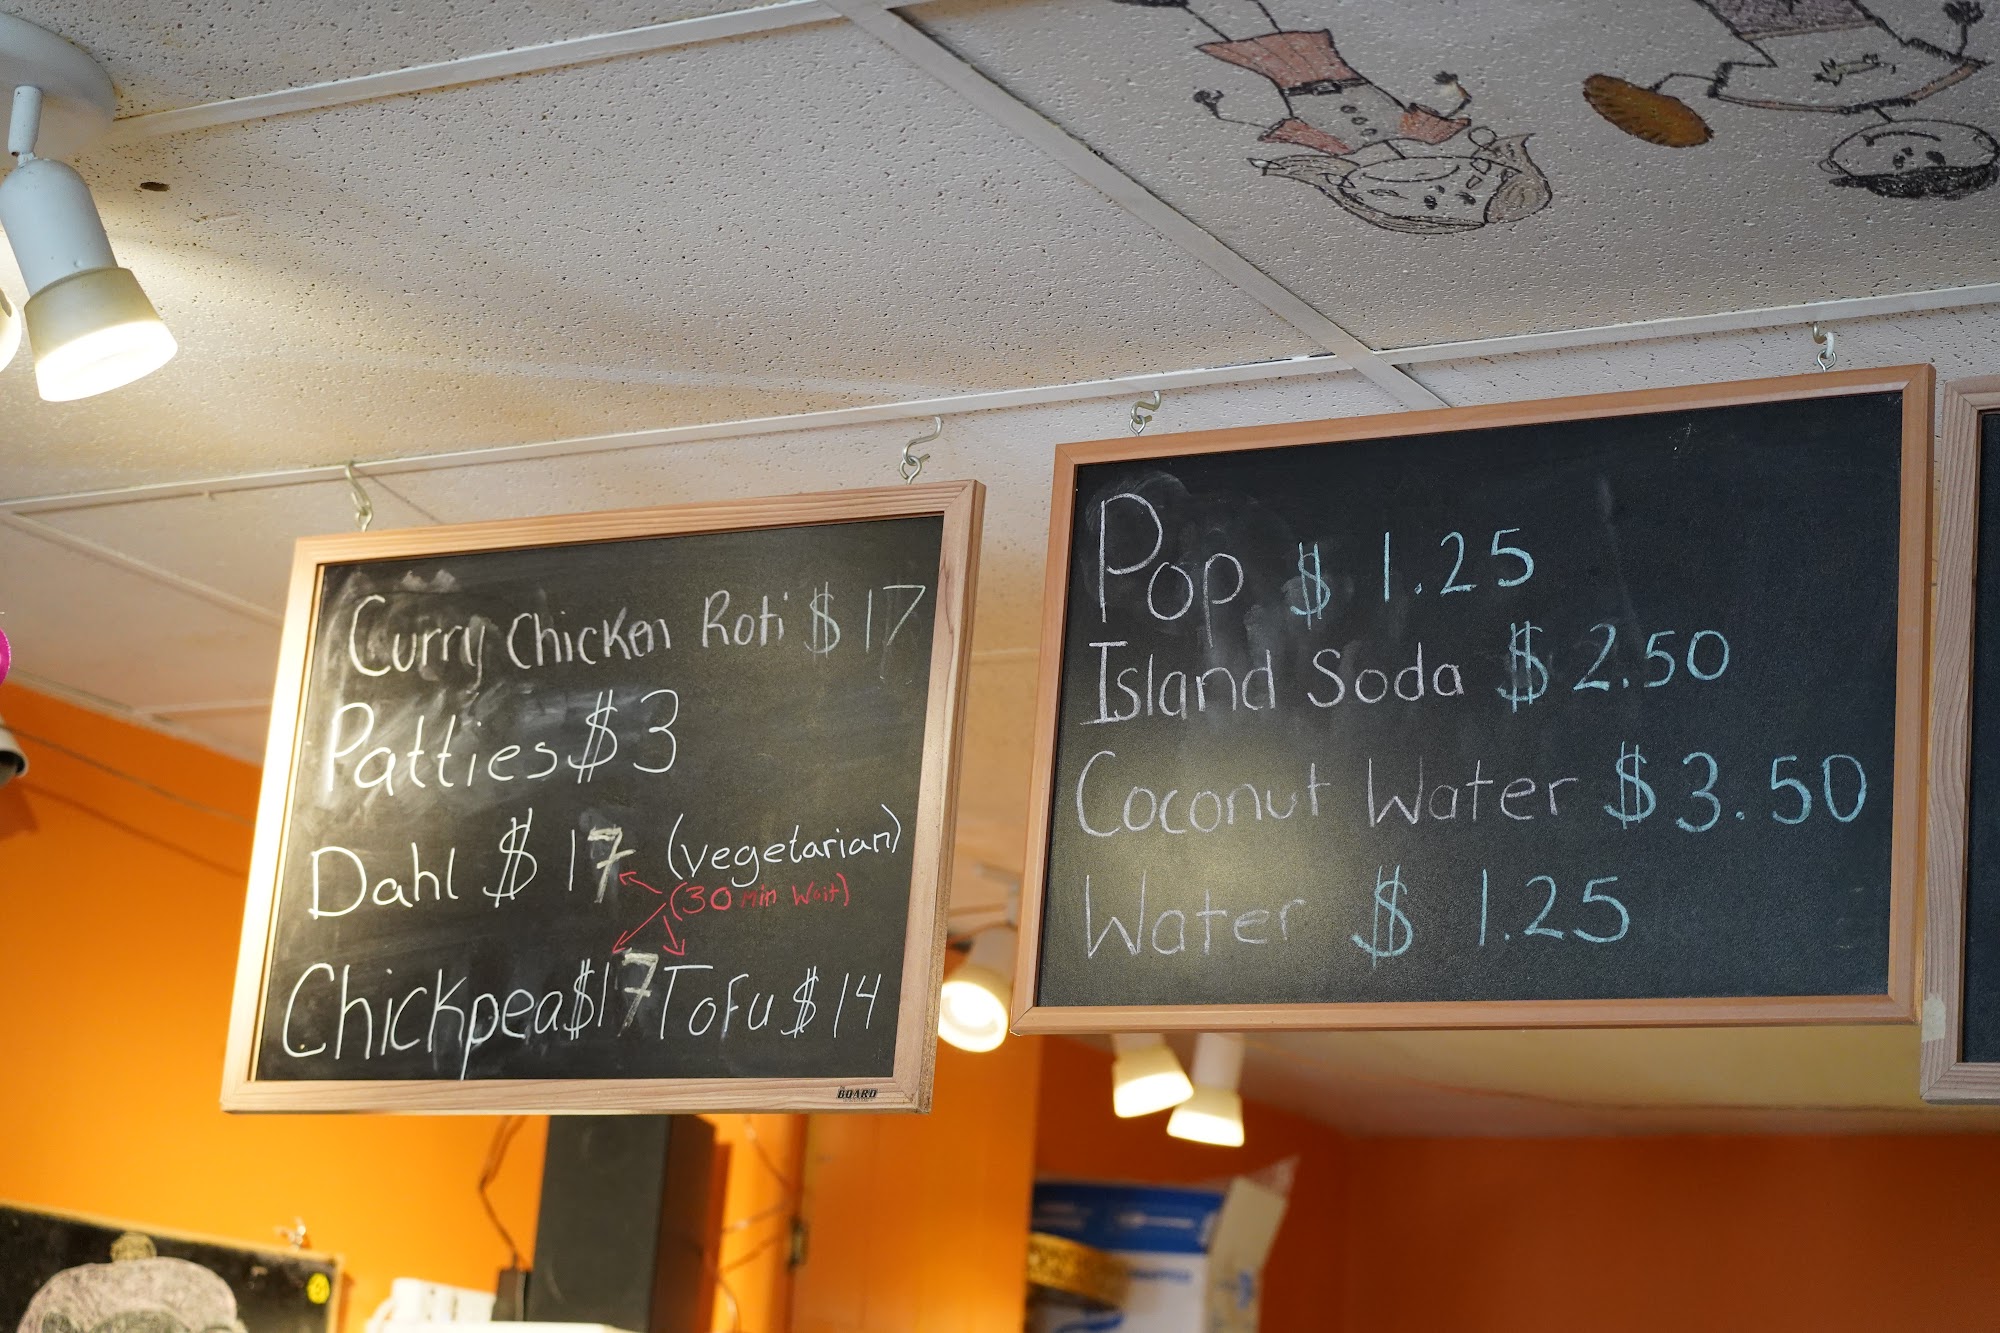 Curry Chicken Roti $17
Patties $3
Dahl $17 (vegetarian)
(30 min Wait)
Chickpea $17 Tofu $14
BOARD
Pop $1.25
Island Soda $2.50
Coconut Water $3.50
Water $1.25